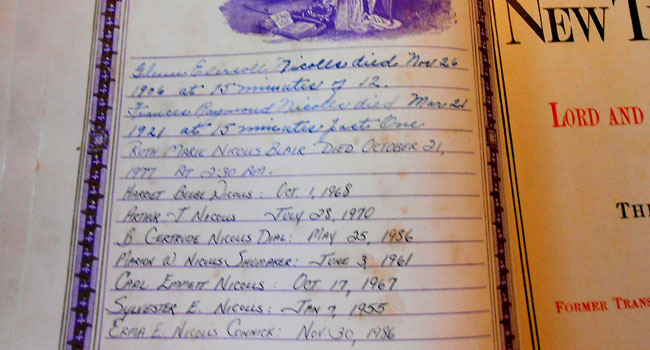 Glenns Edersoll Nicolls died Nov 26
1906 at 15 minutes of 12.
Frances Raymond Nicolls died Mar 21
1921 at 15 minutes past One
Ruth Marie Nicolls Blair Died October 21,
1977 at 2:30 am.
Harriet Nicolls: Oct 1, 1968
Arthur J. Nicolls July 28, 1970
B Gertrude Nicolls Dial: May 25, 1956
Marion W Nicolls Shumaker: June 3, 1961
Carl Emmett Nicolls: Oct 17, 1967
Sylvester E. Nicolls: Jan 7, 1955
Erma E. Nicolls Connick: Nov 30, 1986
New T
Lord and
Th
Former Trans